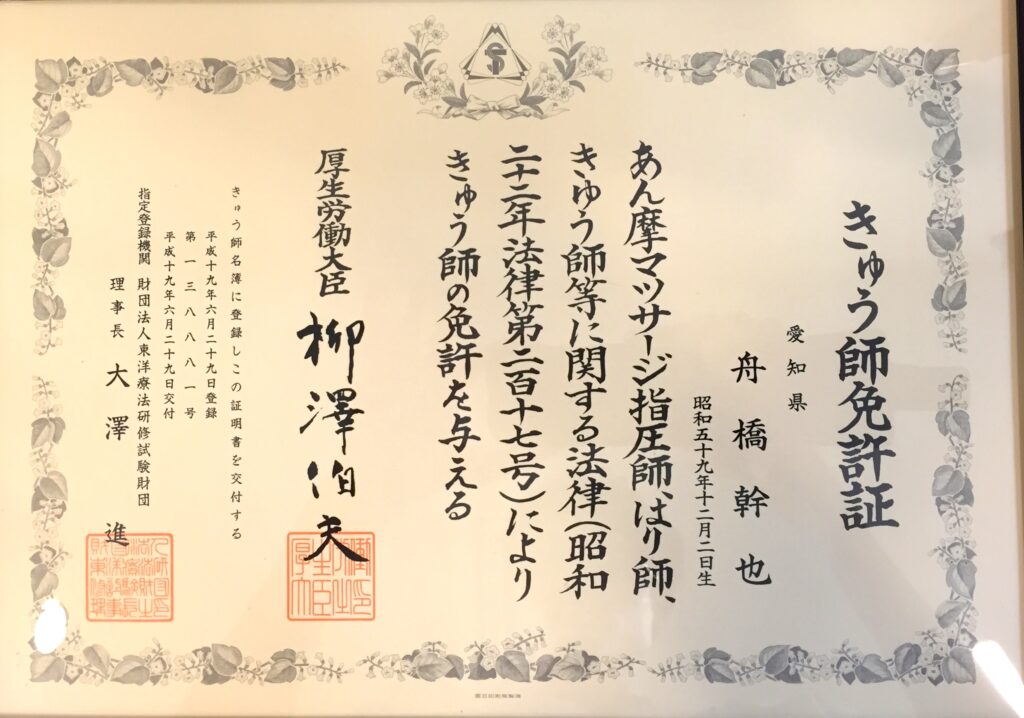 きゅう師免許証
愛知県
舟橋幹也
昭和五十九年十二月二日生
あん摩マツサージ指圧師、はり師、
きゆう師等に関する法律(昭和
二十二年法律第二百十七号)により
きゅう師の免許を与える
厚生労働大臣 柳澤伯夫
きゅう師名簿に登録しこの証明書を交付する
平成十九年六月二十九日登録
第一三八八八一号
平成十九年六月二十九日交付
指定登録機関 財団法人東洋療法研修試験財団
理事長 大澤進